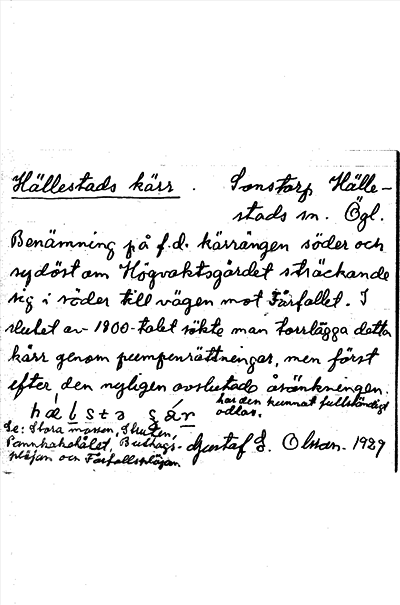 Hällestads kärr. Sonstorp Hälle-
stads sn. Ögl.
Benämning på f.d. kärrängen söder och
sydöst om Högvaktsgärdet sträckande
sig i söder till vägen mot Fårfallet. I
slutet av 1800-talet sökte man torrlägga detta
kärr genom pumpenrättningar, men först
efter den nyligen avslutade åsänkningen
har den kunnat fullständigt
odlas.
Se: Stora mossen,
Pannkakshålet,
plöjan och Fårfallsplöjan
Gustaf E. Olsson. 1929